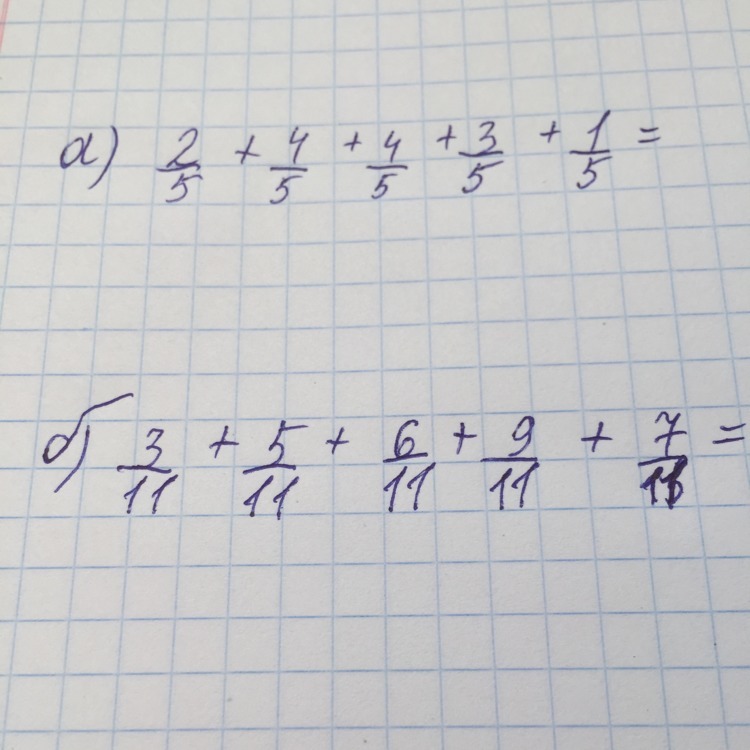 а) 2/5 + 4/5 + 4/5 + 3/5 + 1/5 =
б) 3/11 + 5/11 + 6/11 + 9/11 + 7/11 =